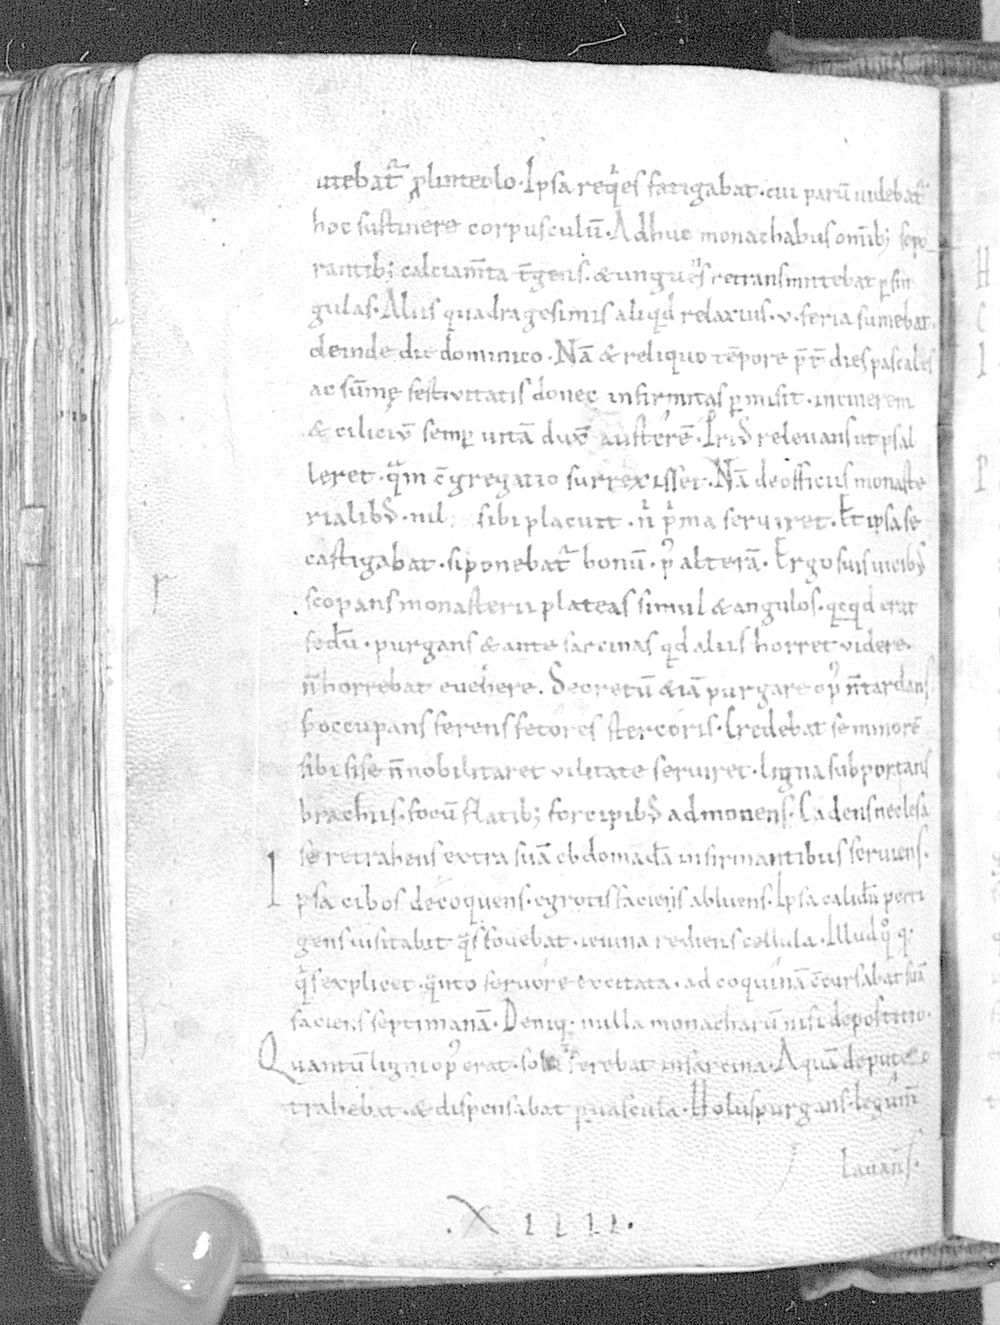 utebat᷑ ꝓ linteolo. Ipsa reqͥes fatigabat. cui parū uidebat᷑
hoc sustinere corpusculū. Adhuc monachabus omībꝫ sopo
rantibꝫ calciam̄ta t̄gens. & ungues retransmittebat ꝑ sin
gulas. Aliis quadragesimis aliqͥd relaxius. v. feria sumebat.
deinde die dominico. Nā & reliquo tēpore p̄t̄ dies pascales
ac sūmę festivitatis donec infirmitas ꝑmisit. in cinerem
& ciliciū semꝑ uitā dux̄ austerē. Priꝰ relevans ut psal
leret. qᵃm c̄gregatio surrexisset. Nā de officiis monaste
rialibꝰ. nil sibi placuit. nͥ pͥma serviret. Et ipsa se
castigabat. si ponebat᷑ bonū. pꝰ alterā. Ergo suis uicibꝰ
scopans monasterii plateas simul & angulos. qcqd erat
fedū. purgans & ante sarcinas qd alius horret videre.
n̄ horrebat evehere. Secretū &iā purgare opꝰ n̄ tardans
s; occupans ferens fetores stercoris. Credebat se minorē
sibi si se n̄ nobilitaret vilitate serviret. ligna subportans
brachiis. focū flatibꝫ forcipibꝰ admonens. Cadens nec lesa
se retrahens extra suā ebdomadā infirmantibus serviens.
Ipsa cibos decoquens. egrotis facieis abluens. Ipsa calidū porri
gens visitabat qͦs fovebat. ieiuna rediens cellula. Illud qͦq̨.
qͥs explicet. qᵃnto fervore excitata. ad coquinā c̄cursabat suā
faciens septimanā. Deniq̨. nulla monacharū nisi de postitio.
Quantū ligni opꝰ erat. sola ferebat in sarcina. Aquā de puteo
trahebat. & dispensabat ꝑ vascula. Holus purgans. legum̄
lavans.
. X IIII.